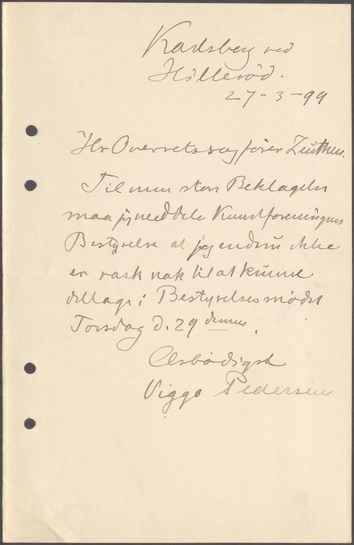 Karlsberg ved
Hilleröd.
27-3-99
Hr Overretssagfører Zeuthen.
Til min store Beklagelse
maa jeg meddele Kunstforeningens
Bestyrelse at jeg endnu ikke
er rask nok til at kunne
deltage i Bestyrelsesmødet
Torsdag d. 29 dennes.
Ærbødigst
Viggo Pedersen